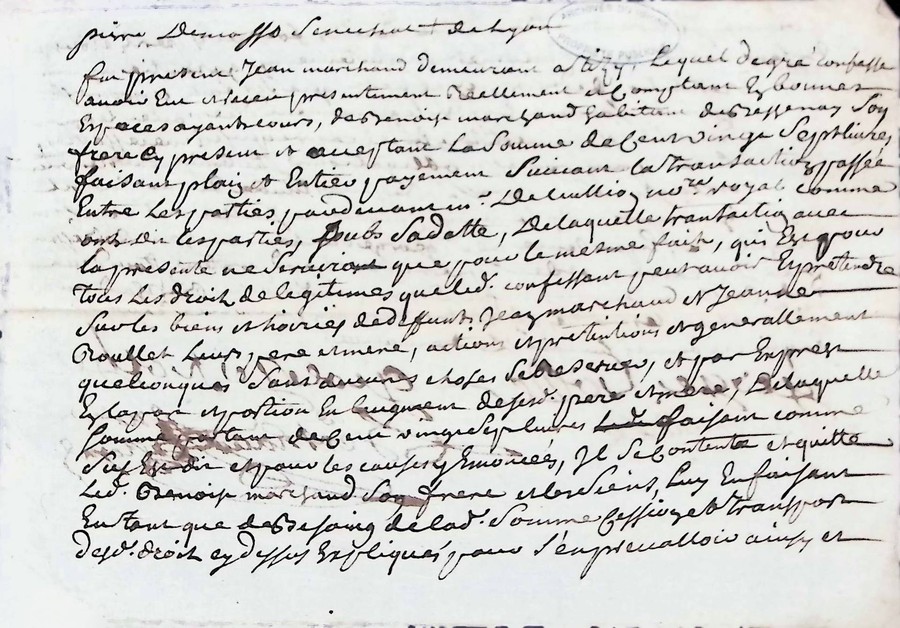 pierre Demosso Senechal de Lyon
fut present Jean marchand demeurant a tizy, Lequel de gré confesse
avoir Eu et receu presentement Reellement et Comptant En bonnes
Especes ayant cours, de Benoist marchand habitant de Bessenay Son
frere Cy present et acceptant La Somme de Cent vingt Sept livres,
faisant plain et Entier payement Suivant la transaction passée
Entre Les parties pardevant m.e no.re royal comme
ont dit les parties, Soubs Sa datte, De laquelle transaction avec
la presente ne Serviront que pour le mesme fait, qui Est pour
tous Les droit de legitimes que led. confessant peut avoir Et pretendre
Sur les biens et hoiries de deffunts Jean marchand et Jeanne
Roullet Leurs pere et mere, actions et pretentions et generallement
quelconques Sans aucunes choses Se Reserver, et par Exprest
En la part et portion En augment de sesd. pere et mere, De laquelle
Somme partant de Cent vingt Sept livres faisant comme
Sus Est dit et pour les causes y Enoncés, Il Se Contente et quitte
Led. Benoist marchand Son frere et les Siens, Luy En faisant
En tant que de Besoing de lad. Somme Cession et transport
desd. droit cy dessus Expliqués pour S'en prevalloir ainsy et